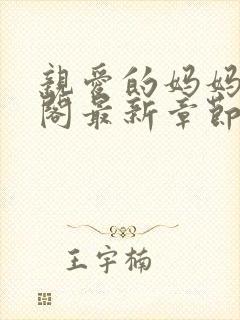 親愛的妈妈
閣最新章節
王宇楠